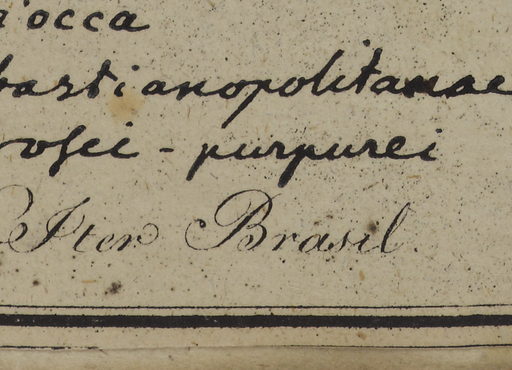 rocca
bastianopolitanae
rosei - purpurei
Iter Brasil.